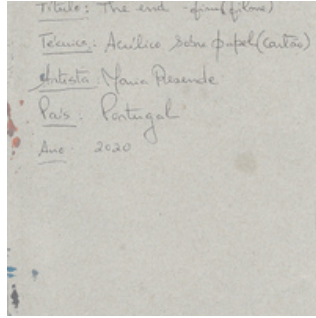 Título: The end - fim (filone)
Técnica: Acrílico sobre papel (cartão)
Artista: Maria Resende
País: Portugal
Ano: 2020